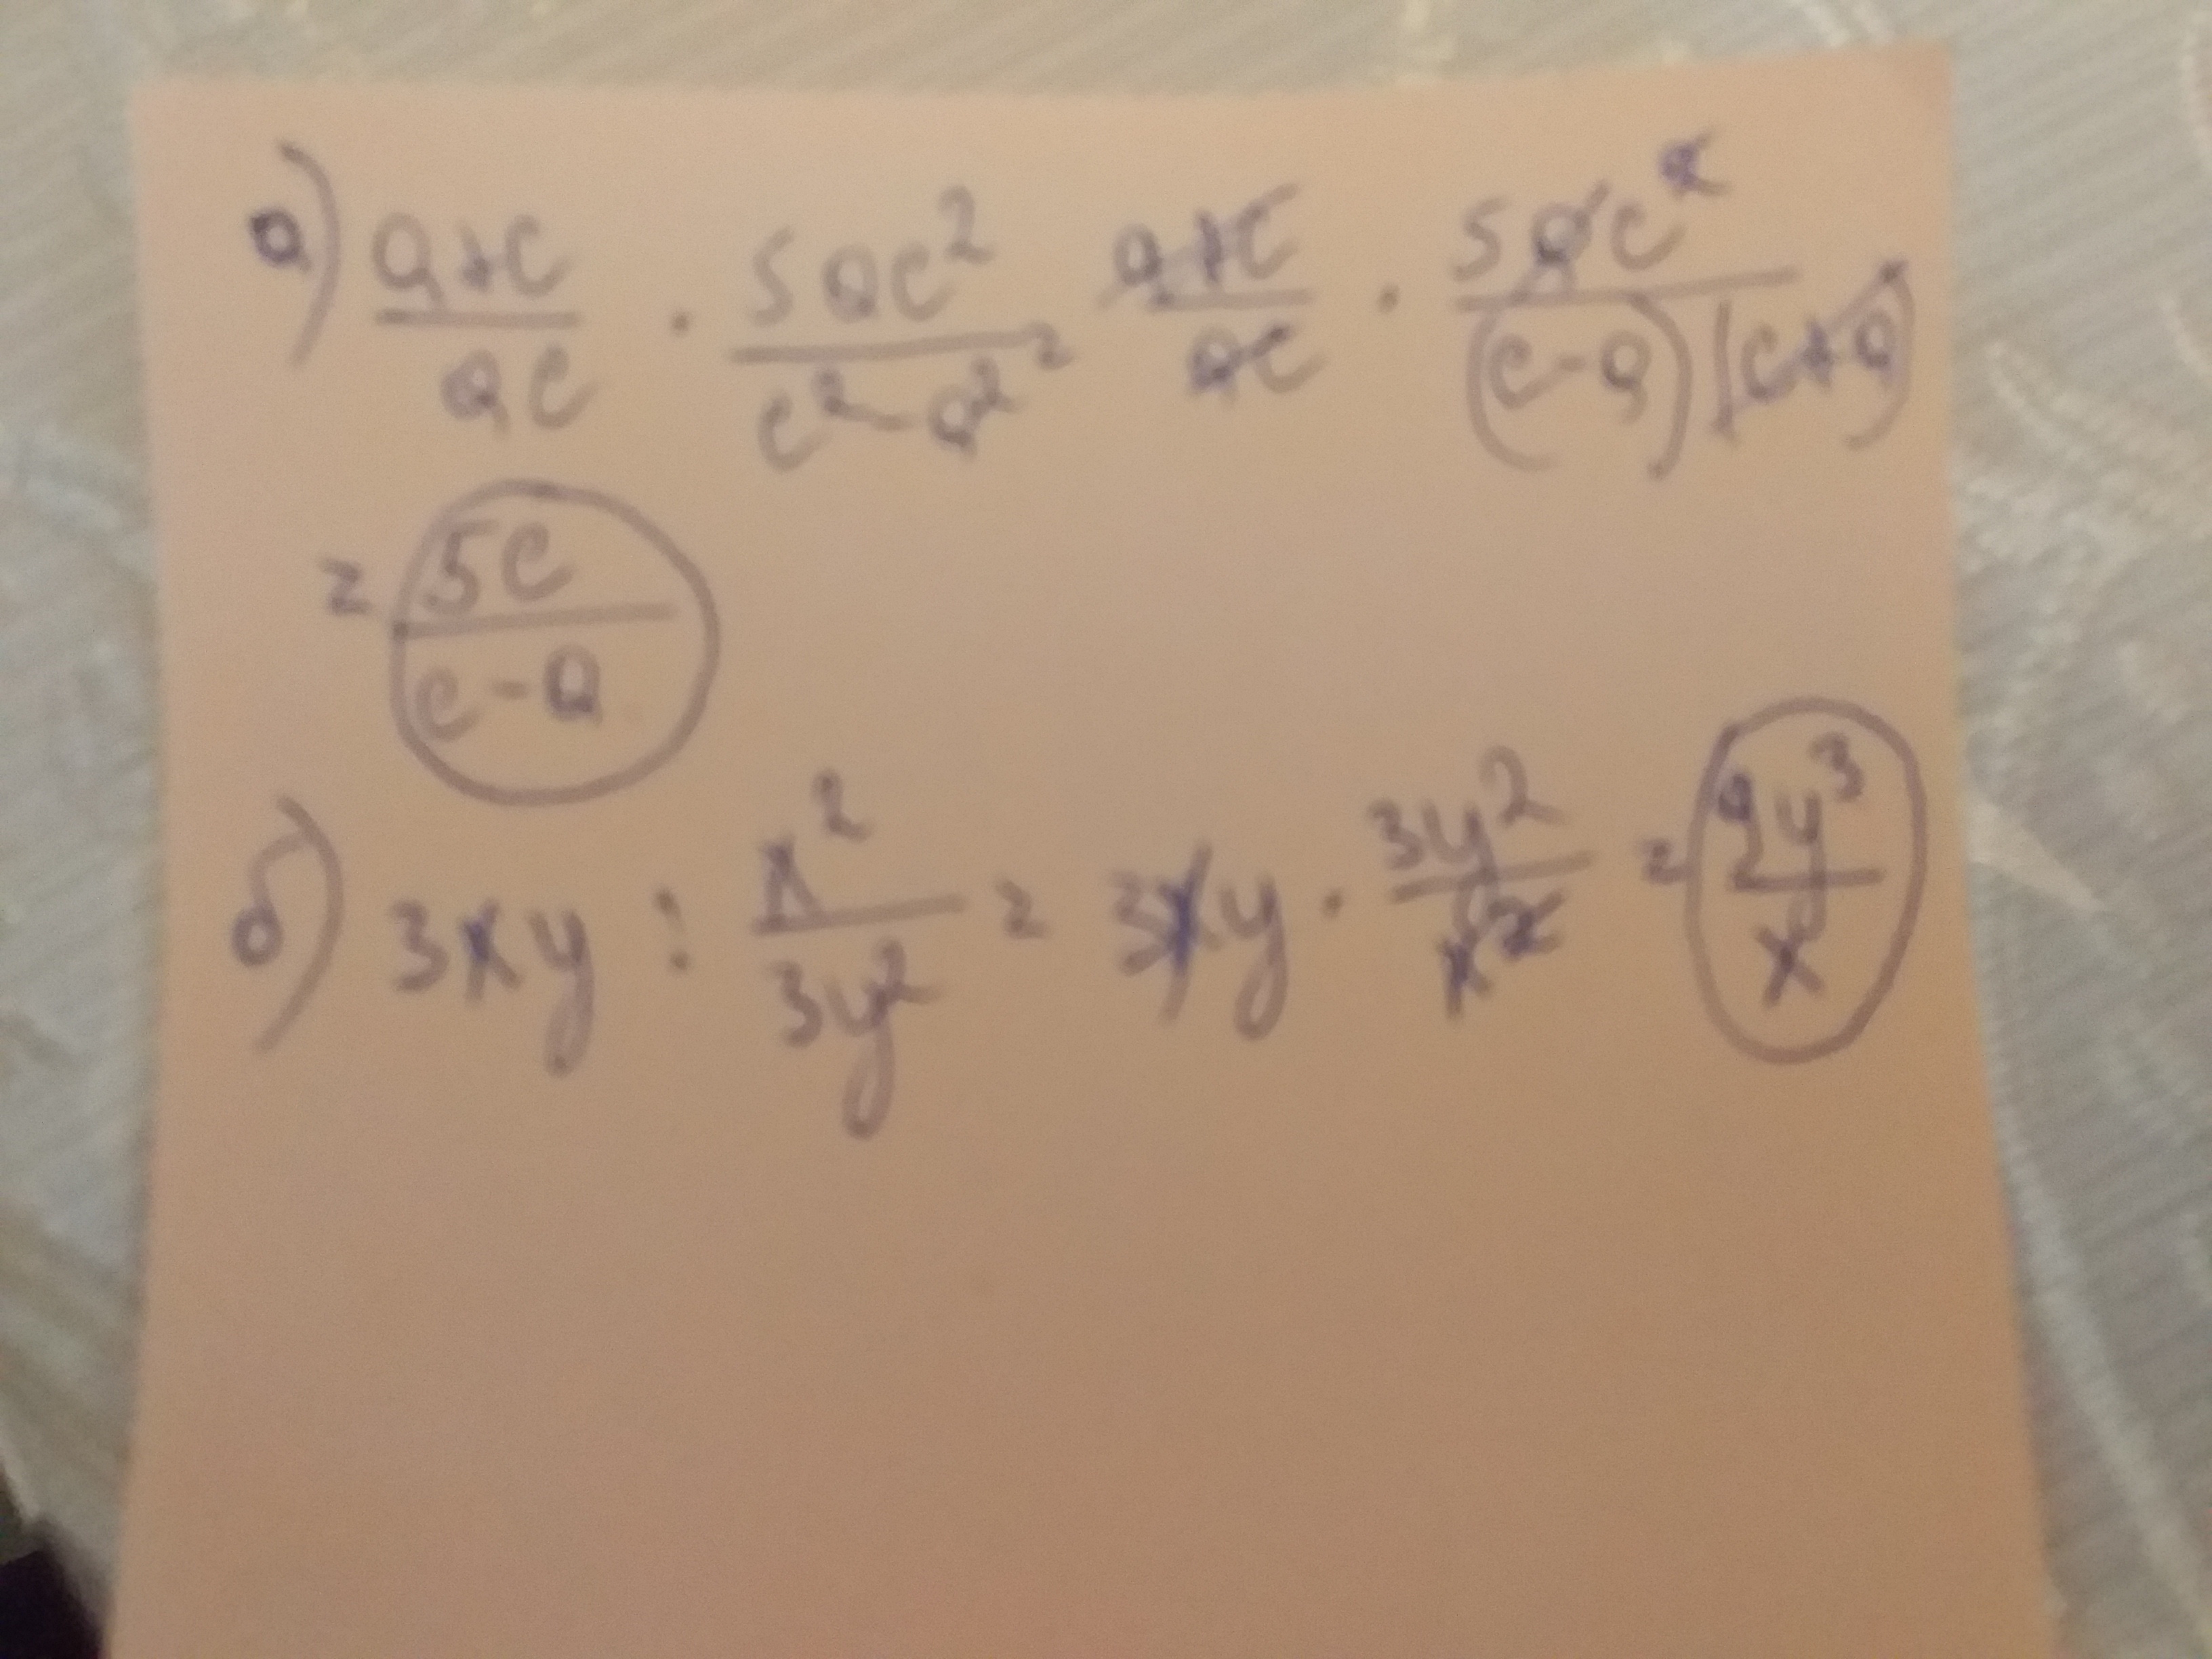 а) (a+c)/(ac) · (5ac²)/(c²-a²) = (a+c)/(ac) · (5ac²)/((c-a)(c+a))
= (5c)/(c-a)
б) 3xy : x²/(3y²) = 3xy · (3y²)/x² = (9y³)/x